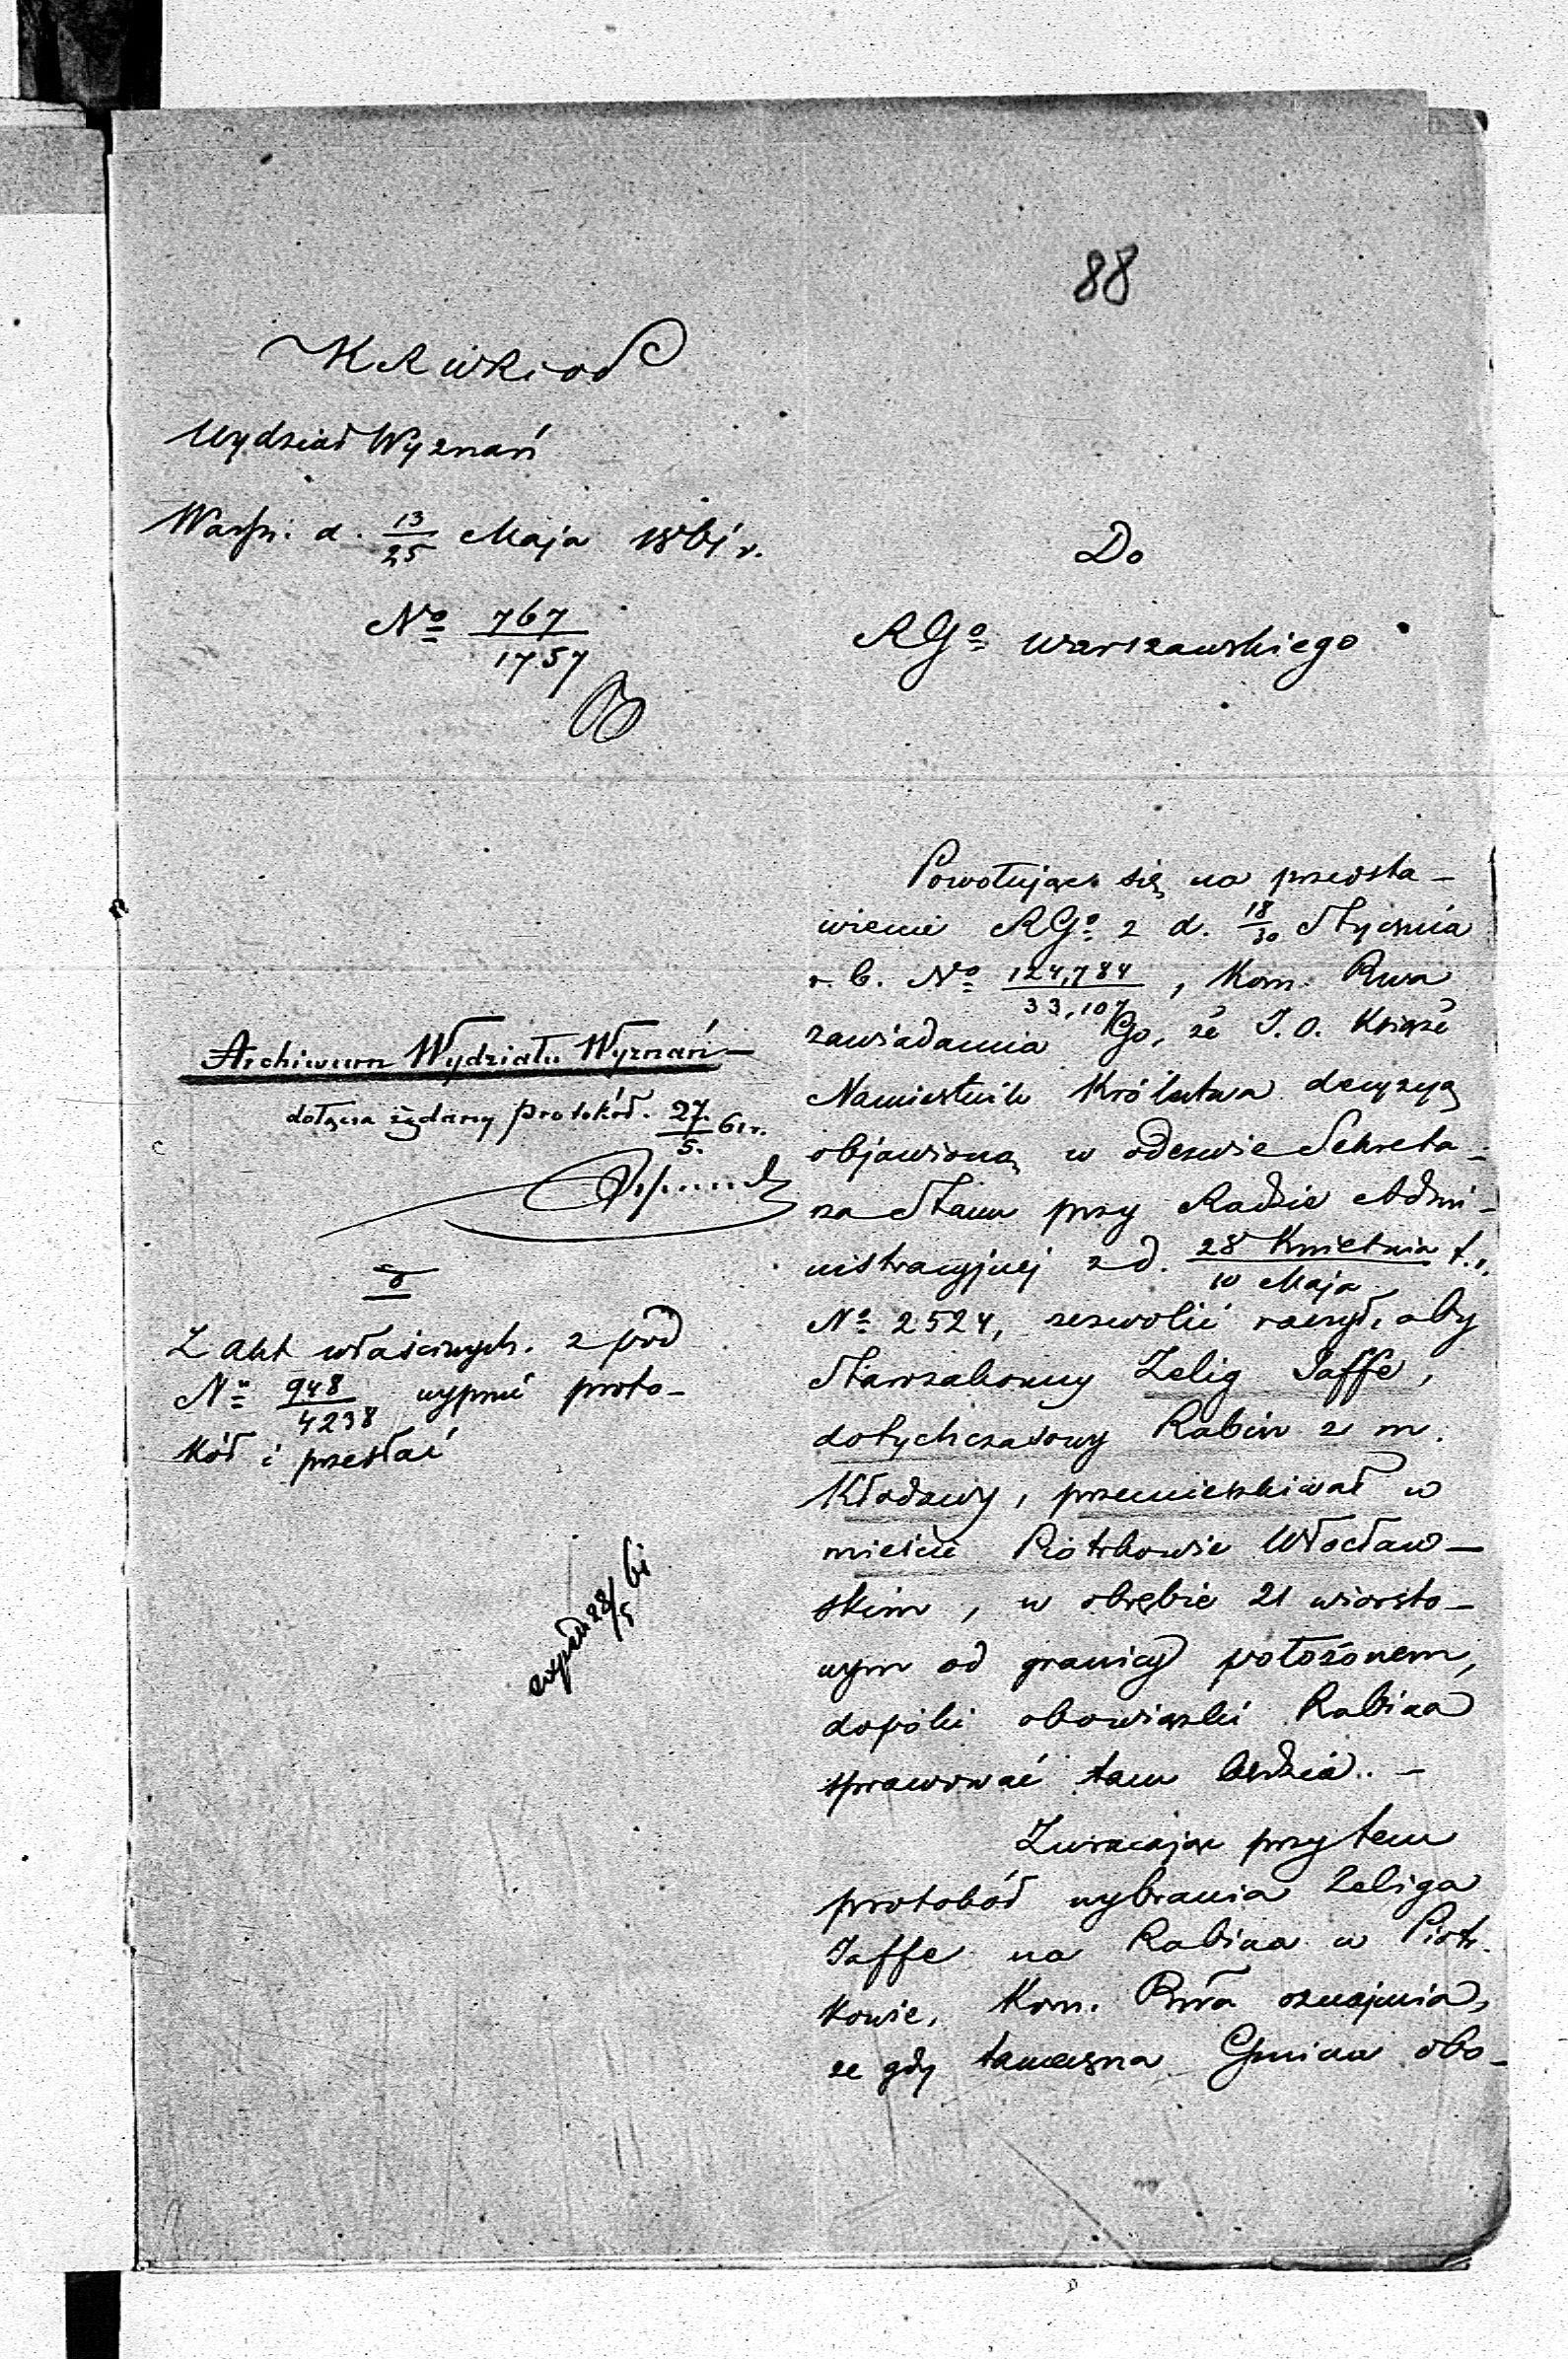 88
KRWRiOP
Wydział Wyznań
Warsz: d. 13/25 Maja 1861 r.
No 767/1757
Do
RGo Warszawskiego
Archiwum Wydziału Wyznań
dołącza żądany protokół. 27/5. 61 r.
Z akt właściwych z pod
No 948/4238 wypruć proto-
kół i przesłać
exped 28/5 61
Powołując się na przedsta-
wienie RGo z d. 18/30 Stycznia
r. b. No 124,784/33,107, Kom. Rwa
zawiadamia Go, że J. O. Książe
Namiestnik Królestwa decyzyą
objawioną w odezwie Sekreta-
rza Stanu przy Radzie Admi-
nistracyjnej z d. 28 Kwietnia/10 Maja
No 2524, zezwolić raczył, aby
Starozakonny Zelig Jaffe,
dotychczasowy Rabin z m.
Kłodawy, przemieszkiwał w
mieście Piotrkowie Włocław-
skim, w obrębie 21 wiorsto-
wym od granicy położonem,
dopóki obowiązki Rabina
sprawować tam będzie. -
Zwracając przytem
protokół wybrania Zeliga
Jaffe na Rabina w Piotr-
kowie, Kom. Rwa oznajmia,
że gdy tameczna Gmina obo-